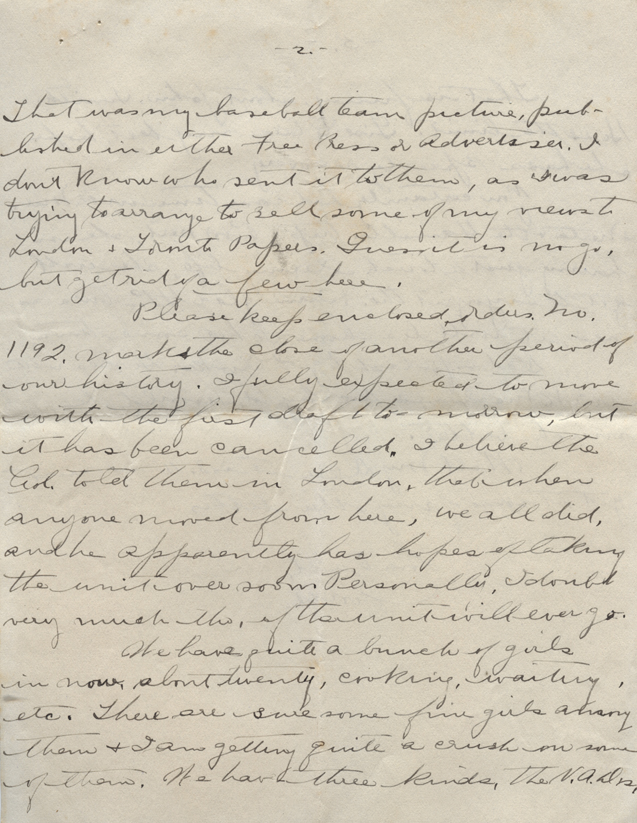 - 2. -
That was my baseball team picture, pub-
lished in either Free Press or Advertiser. I
don't know who sent it to them, as I was
trying to arrange to sell some of my views to
London & Toronto Papers. Guess it is no go,
but get rid of a few here.
Please keep enclosed orders. No.
1192. marks the close of another period of
our history. I fully expected to move
with the first draft to-morrow, but
it has been cancelled. I believe the
Col. told them in London, that when
anyone moved from here, we all did,
and he apparently has hopes of taking
the unit over soon. Personally, I doubt
very much tho, if the unit will ever go.
We have quite a bunch of girls
in now, about twenty, cooking, waiting,
etc. There are sure some fine girls among
them & I am getting quite a crush on some
of them. We have three kinds, the V.A.Ds,